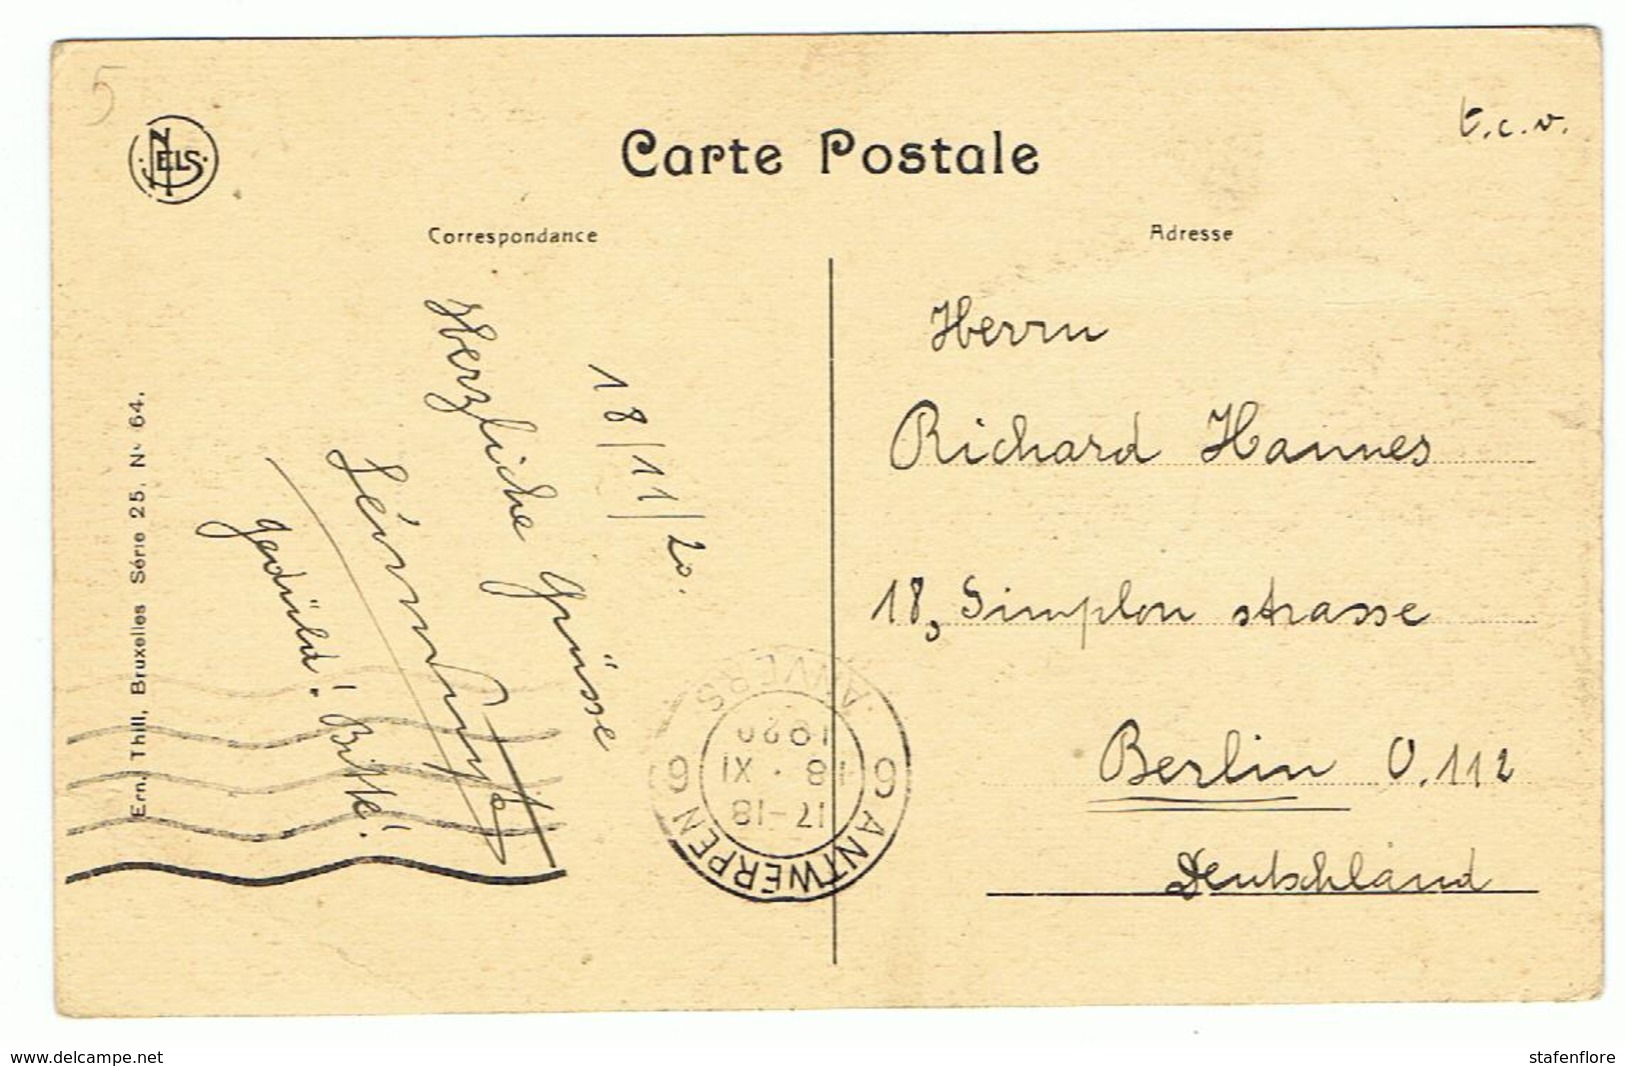 5
NELS
Carte Postale
t.c.v.
Correspondance
Adresse
18/11/20.
Herzliche Grüsse
Geduld! Bitte!
Herrn
Richard Hannes
18, Simplon strasse
Berlin O.112
Deutschland
6 ANTWERPEN 6
ANVERS
17-18
18 · XI
1920
Ern. Thill, Bruxelles Série 25, No 64.
www.delcampe.net
stafenflore